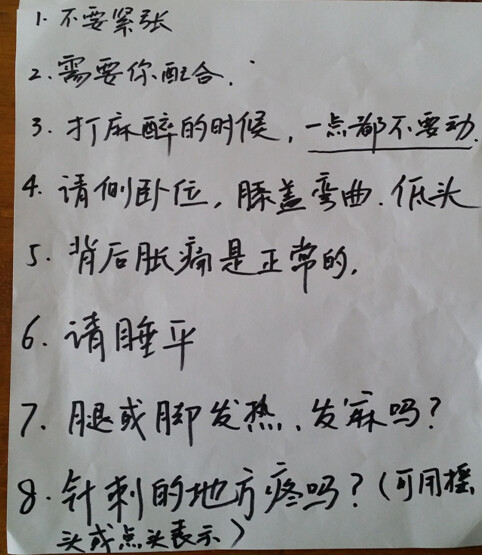 1. 不要紧张
2. 需要你配合.
3. 打麻醉的时候，一点都不要动.
4. 请侧卧位，膝盖弯曲.低头
5. 背后胀痛是正常的.
6. 请睡平
7. 腿或脚发热、发麻吗？
8. 针刺的地方疼吗？(可用摇
头或点头表示)